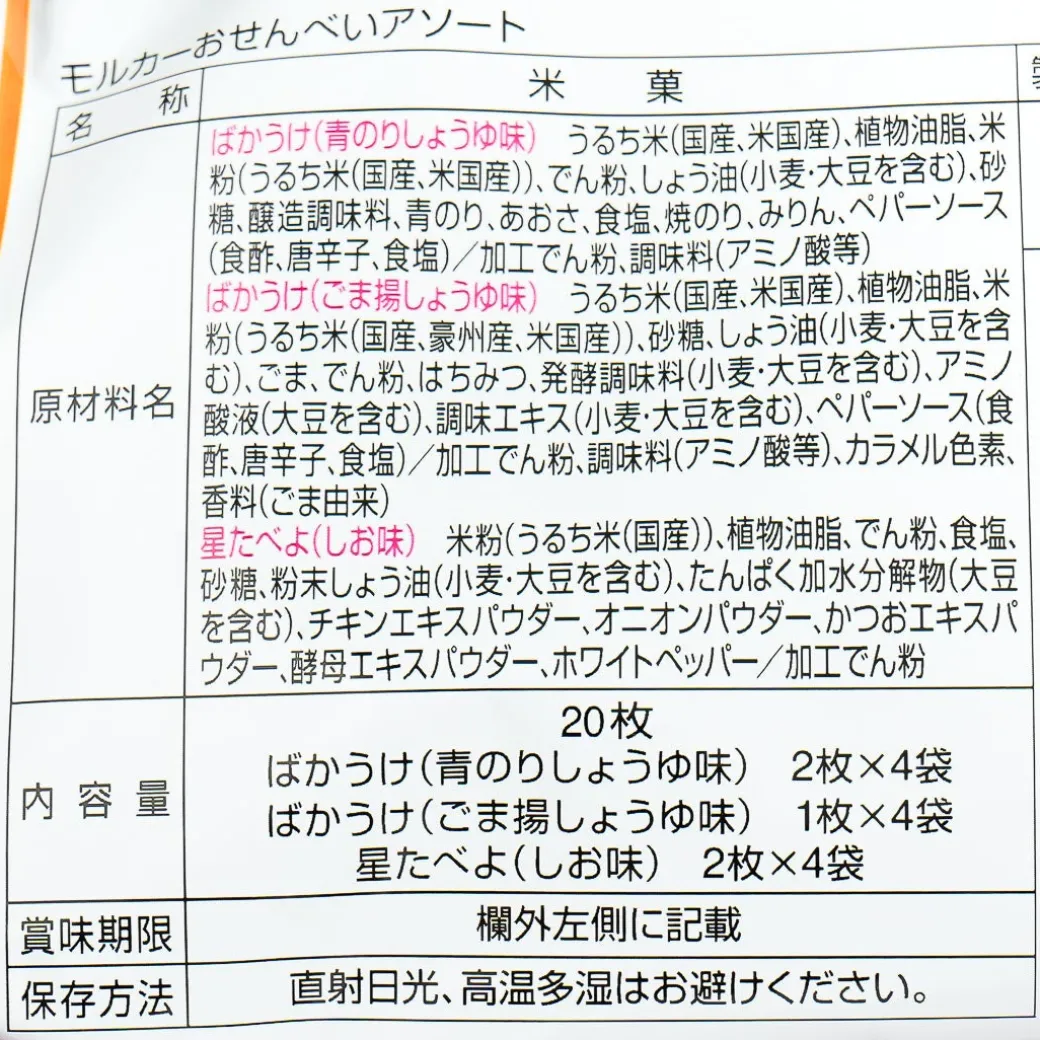 モルカーおせんべいアソート
名称 米菓
製
原材料名
ばかうけ(青のりしょうゆ味) うるち米(国産、米国産)、植物油脂、米
粉(うるち米(国産、米国産))、でん粉、しょう油(小麦・大豆を含む)、砂
糖、醸造調味料、青のり、あおさ、食塩、焼のり、みりん、ペパーソース
(食酢、唐辛子、食塩)/加工でん粉、調味料(アミノ酸等)
ばかうけ(ごま揚しょうゆ味) うるち米(国産、米国産)、植物油脂、米
粉(うるち米(国産、豪州産、米国産))、砂糖、しょう油(小麦・大豆を含
む)、ごま、でん粉、はちみつ、発酵調味料(小麦・大豆を含む)、アミノ
酸液(大豆を含む)、調味エキス(小麦・大豆を含む)、ペパーソース(食
酢、唐辛子、食塩)/加工でん粉、調味料(アミノ酸等)、カラメル色素、
香料(ごま由来)
星たべよ(しお味) 米粉(うるち米(国産))、植物油脂、でん粉、食塩、
砂糖、粉末しょう油(小麦・大豆を含む)、たんぱく加水分解物(大豆
を含む)、チキンエキスパウダー、オニオンパウダー、かつおエキスパ
ウダー、酵母エキスパウダー、ホワイトペッパー/加工でん粉
内容量
20枚
ばかうけ(青のりしょうゆ味) 2枚×4袋
ばかうけ(ごま揚しょうゆ味) 1枚×4袋
星たべよ(しお味) 2枚×4袋
賞味期限 欄外左側に記載
保存方法 直射日光、高温多湿はお避けください。